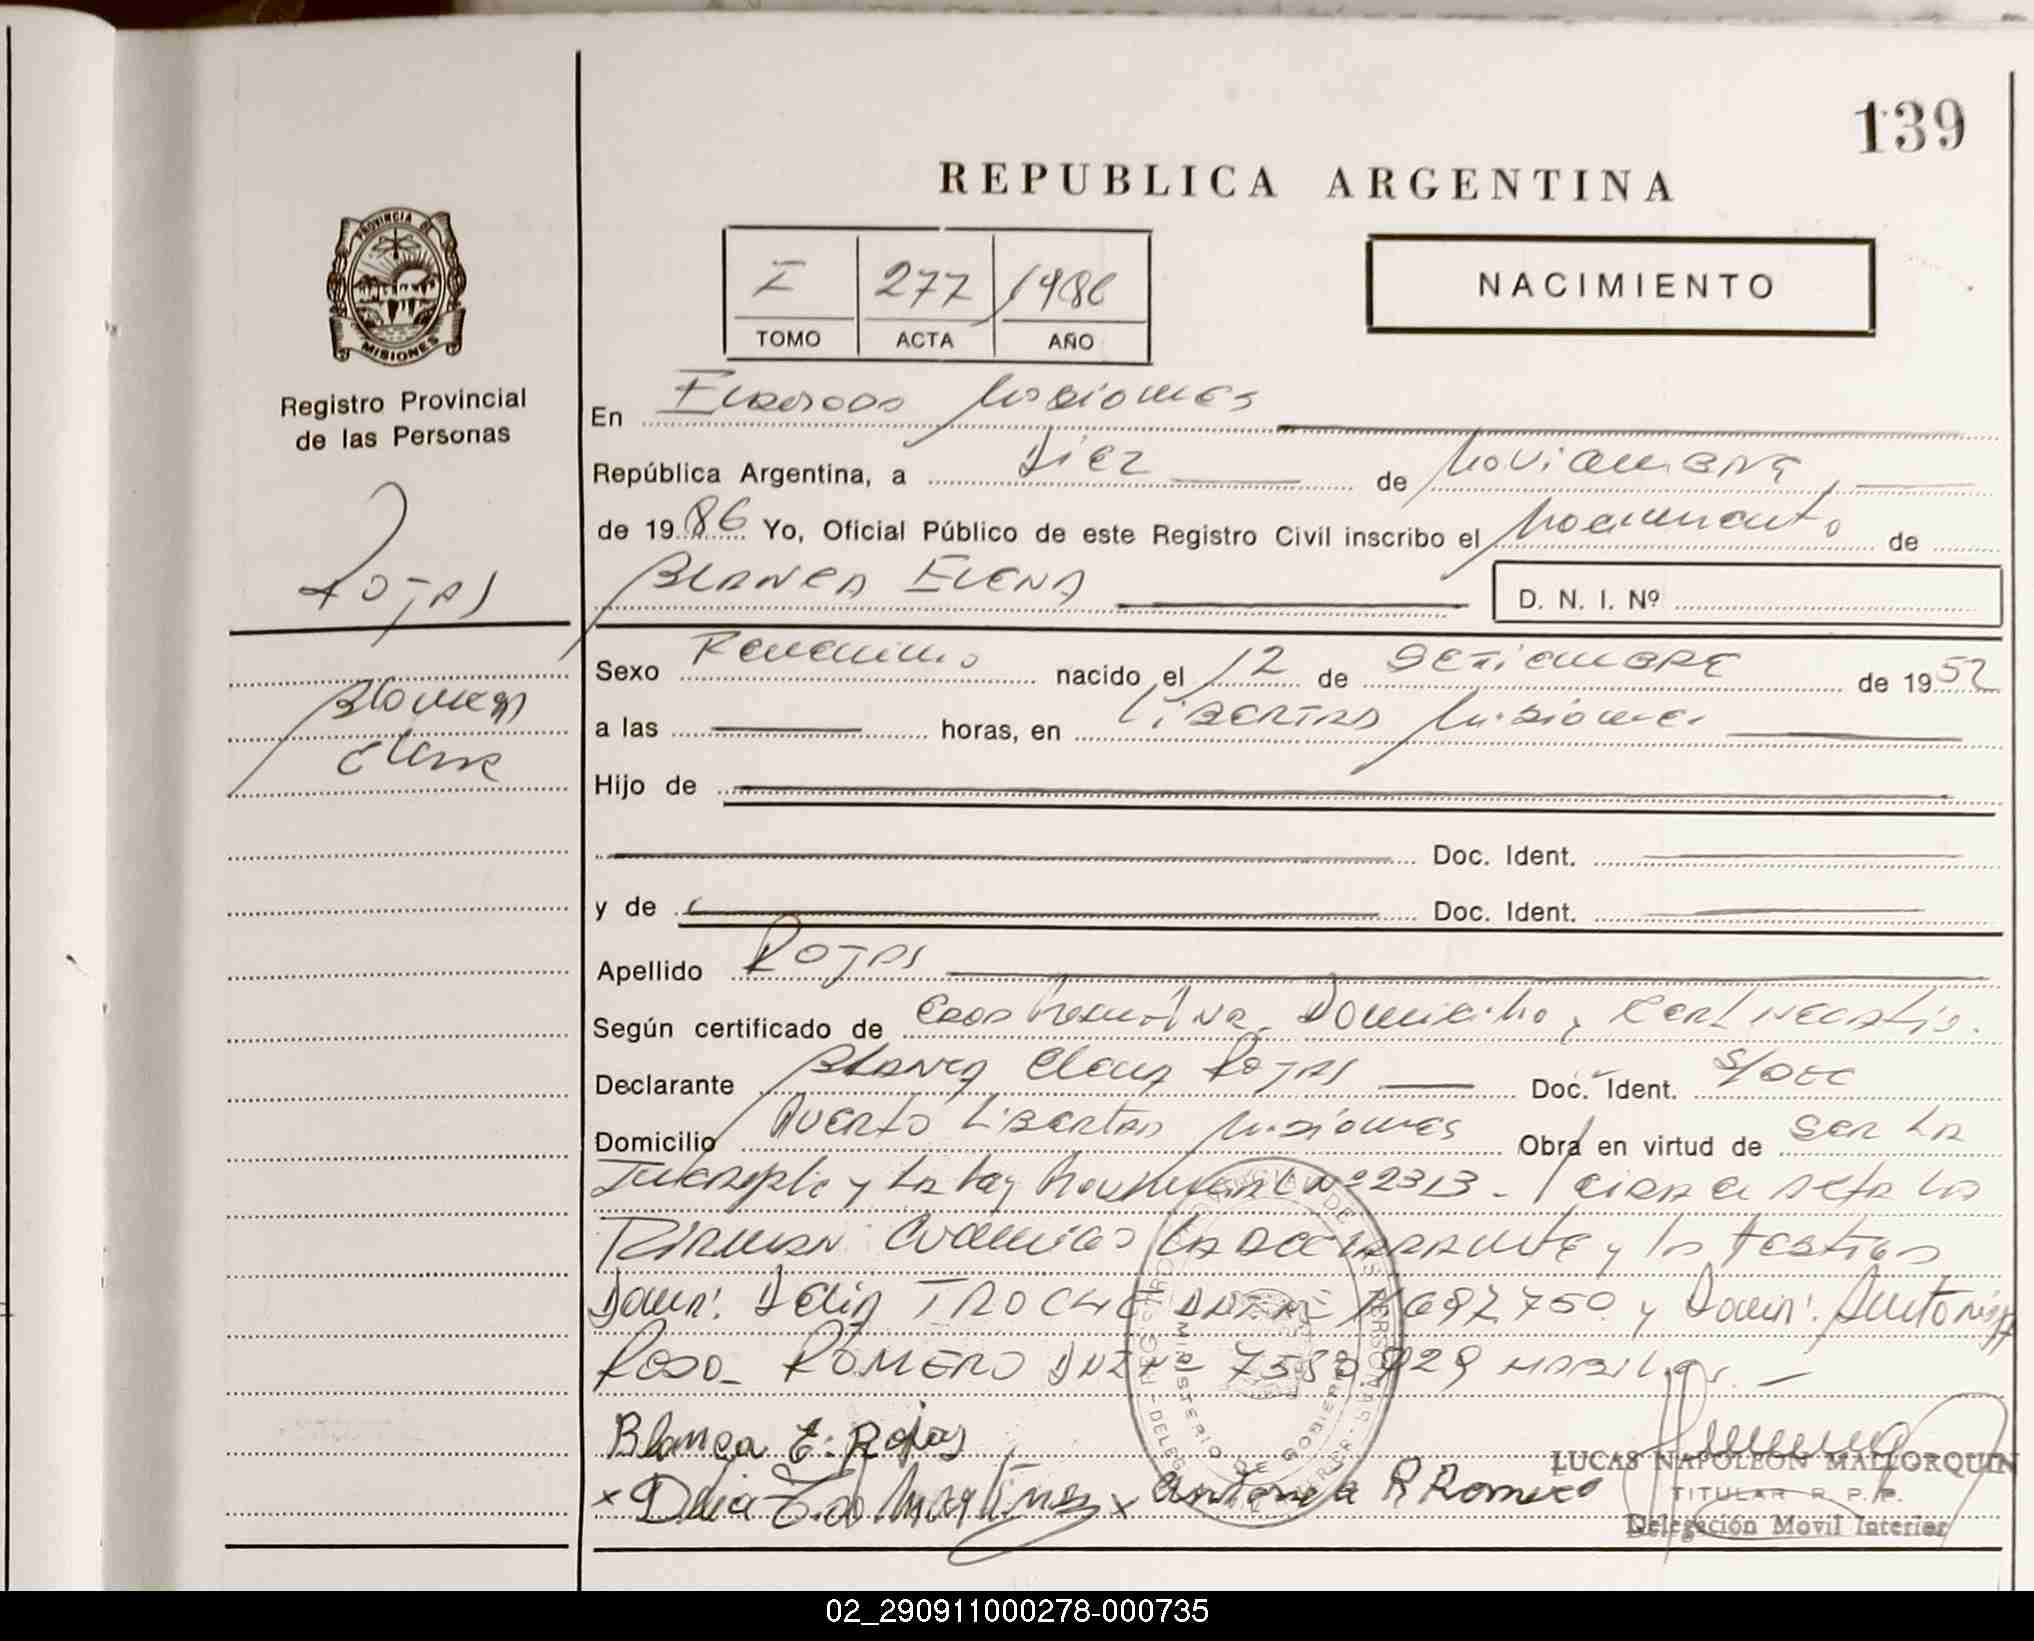 139
REPUBLICA ARGENTINA
PROVINCIA DE
MISIONES
Registro Provincial
de las Personas
I 277 1986
TOMO ACTA AÑO
NACIMIENTO
En Eldorado Misiones
República Argentina, a Diez de Noviembre
de 1986 Yo, Oficial Público de este Registro Civil inscribo el Nacimiento de
BLANCA ELENA D. N. I. Nº
ROJAS
Sexo Femenino nacido el 12 de SETIEMBRE de 1952
Blanca
Elena
a las horas, en LIBERTAD Misiones
Hijo de
Doc. Ident.
y de Doc. Ident.
Apellido ROJAS
Según certificado de Domicilio, Cert Negativo.
Declarante Blanca Elena ROJAS Doc. Ident. S/DOC
Domicilio Puerto Libertad Misiones Obra en virtud de Ser La
y La Ley Nº 2313 -
Firman La Declarante y los testigos
Delia TROCHE y Antonia
Rosa ROMERO
Blanca E. Rojas
x Delia x Antonia R Romero
LUCAS NAPOLEON MALLORQUIN
TITULAR R. P. P.
Delegación Movil Interior
02_290911000278-000735